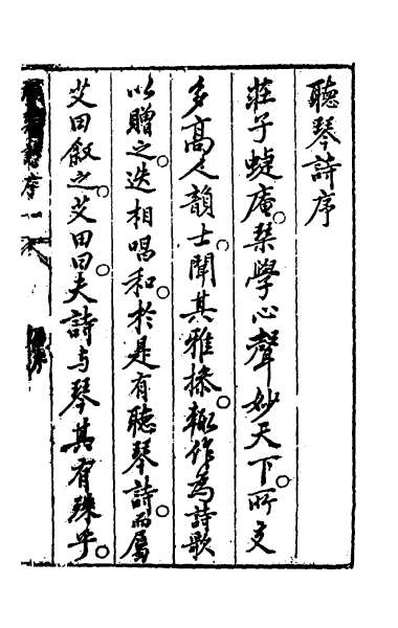 聽琴詩序
莊子蝶庵。琴學心聲妙天下。所交
多高人韻士。聞其雅操。輒作為詩歌
以贈之。迭相唱和。於是有聽琴詩。而屬
艾田叙之。艾田曰。夫詩与琴其有殊乎。